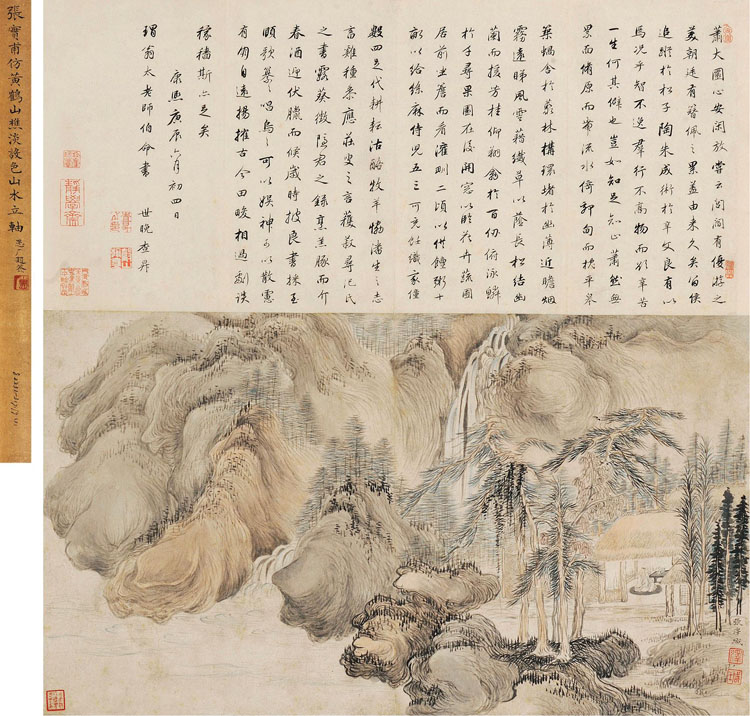 蕭大圜心安閑放嘗云閭閻有優游之
美朝廷有簪佩之累蓋由來久矣留侯
追蹤於松子陶朱成術於辛文良有以
焉況乎智不逸群行不高物而欲辛苦
一生何其僻也豈如知足知止蕭然無
累面脩原而帶流水倚郊甸而枕平皋
築蝸舍於叢林構環堵於幽薄近瞻烟
霧遠睇風雲藉纖草以蔭長松結幽
蘭而援芳桂仰翔禽於百仞俯泳鱗
於千尋果園在後開窗以臨花卉蔬圃
居前坐簷而看灌甽二頃以供饘粥十
畝以給絲麻侍兒五三可充紝織家僮
數四足代耕耘沽酪牧羊協潘生之志
畜雞種黍應莊叟之言穫菽尋氾氏
之書露葵徵隱君之錄烹羔豚而介
春酒迎伏臘而候歲時披良書採至
賾歌纂纂唱烏烏可以娛神可以散慮
有朋自遠揚搉古今田畯相過劇談
稼穡斯亦足矣
康熙庚辰六月初四日
瑁翁太老師伯命書 世晚查昇
張寶甫仿黃鶴山樵淡設色山水立軸